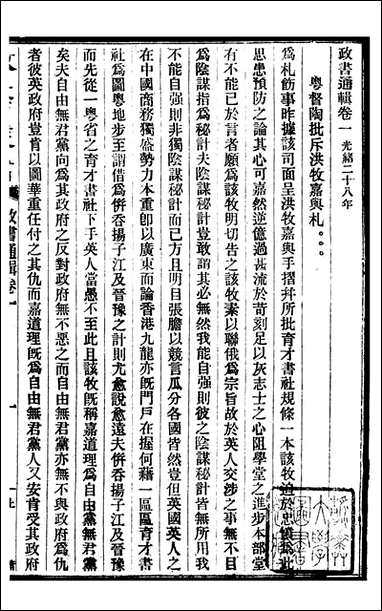 政書通輯卷一 光緒二十八年
粤督陶批斥洪牧嘉與札
爲札飭事昨據該司面呈洪牧嘉與手摺幷所批育才書社規條一本該牧過於忠憤爲此
思患預防之論其心可嘉然逆億過甚流於苛刻足以灰志士之心阻學堂之進步本部堂
有不能已於言者願爲該牧明切告之該牧素以聯俄爲宗旨故於英人交涉之事無不目
爲陰謀指爲秘計夫陰謀秘計雖不敢謂其必無然我能自強則彼之陰謀秘計皆無所用我
不能自強則非獨陰謀秘計而已方且明目張膽以競言瓜分各國皆然豈但英國英人之
在中國商務獨盛勢力本重卽以廣東而論香港九龍亦旣門戶在握何藉一區區育才書
社爲圖粤地步至謂借爲倂吞揚子江及晉豫之計則尤愈說愈遠夫倂吞揚子江及晉豫
而先從一粤省之育才書社下手英人當愚不至此且該牧旣稱嘉道理爲自由無君黨
矣夫自由無君黨向爲其政府之反對政府無不惡之而自由無君黨亦無不與政府爲仇
者彼英政府豈肯以圖華重任付之其仇而嘉道理旣爲自由無君黨人又安肯受其政府
政書通輯卷一
一